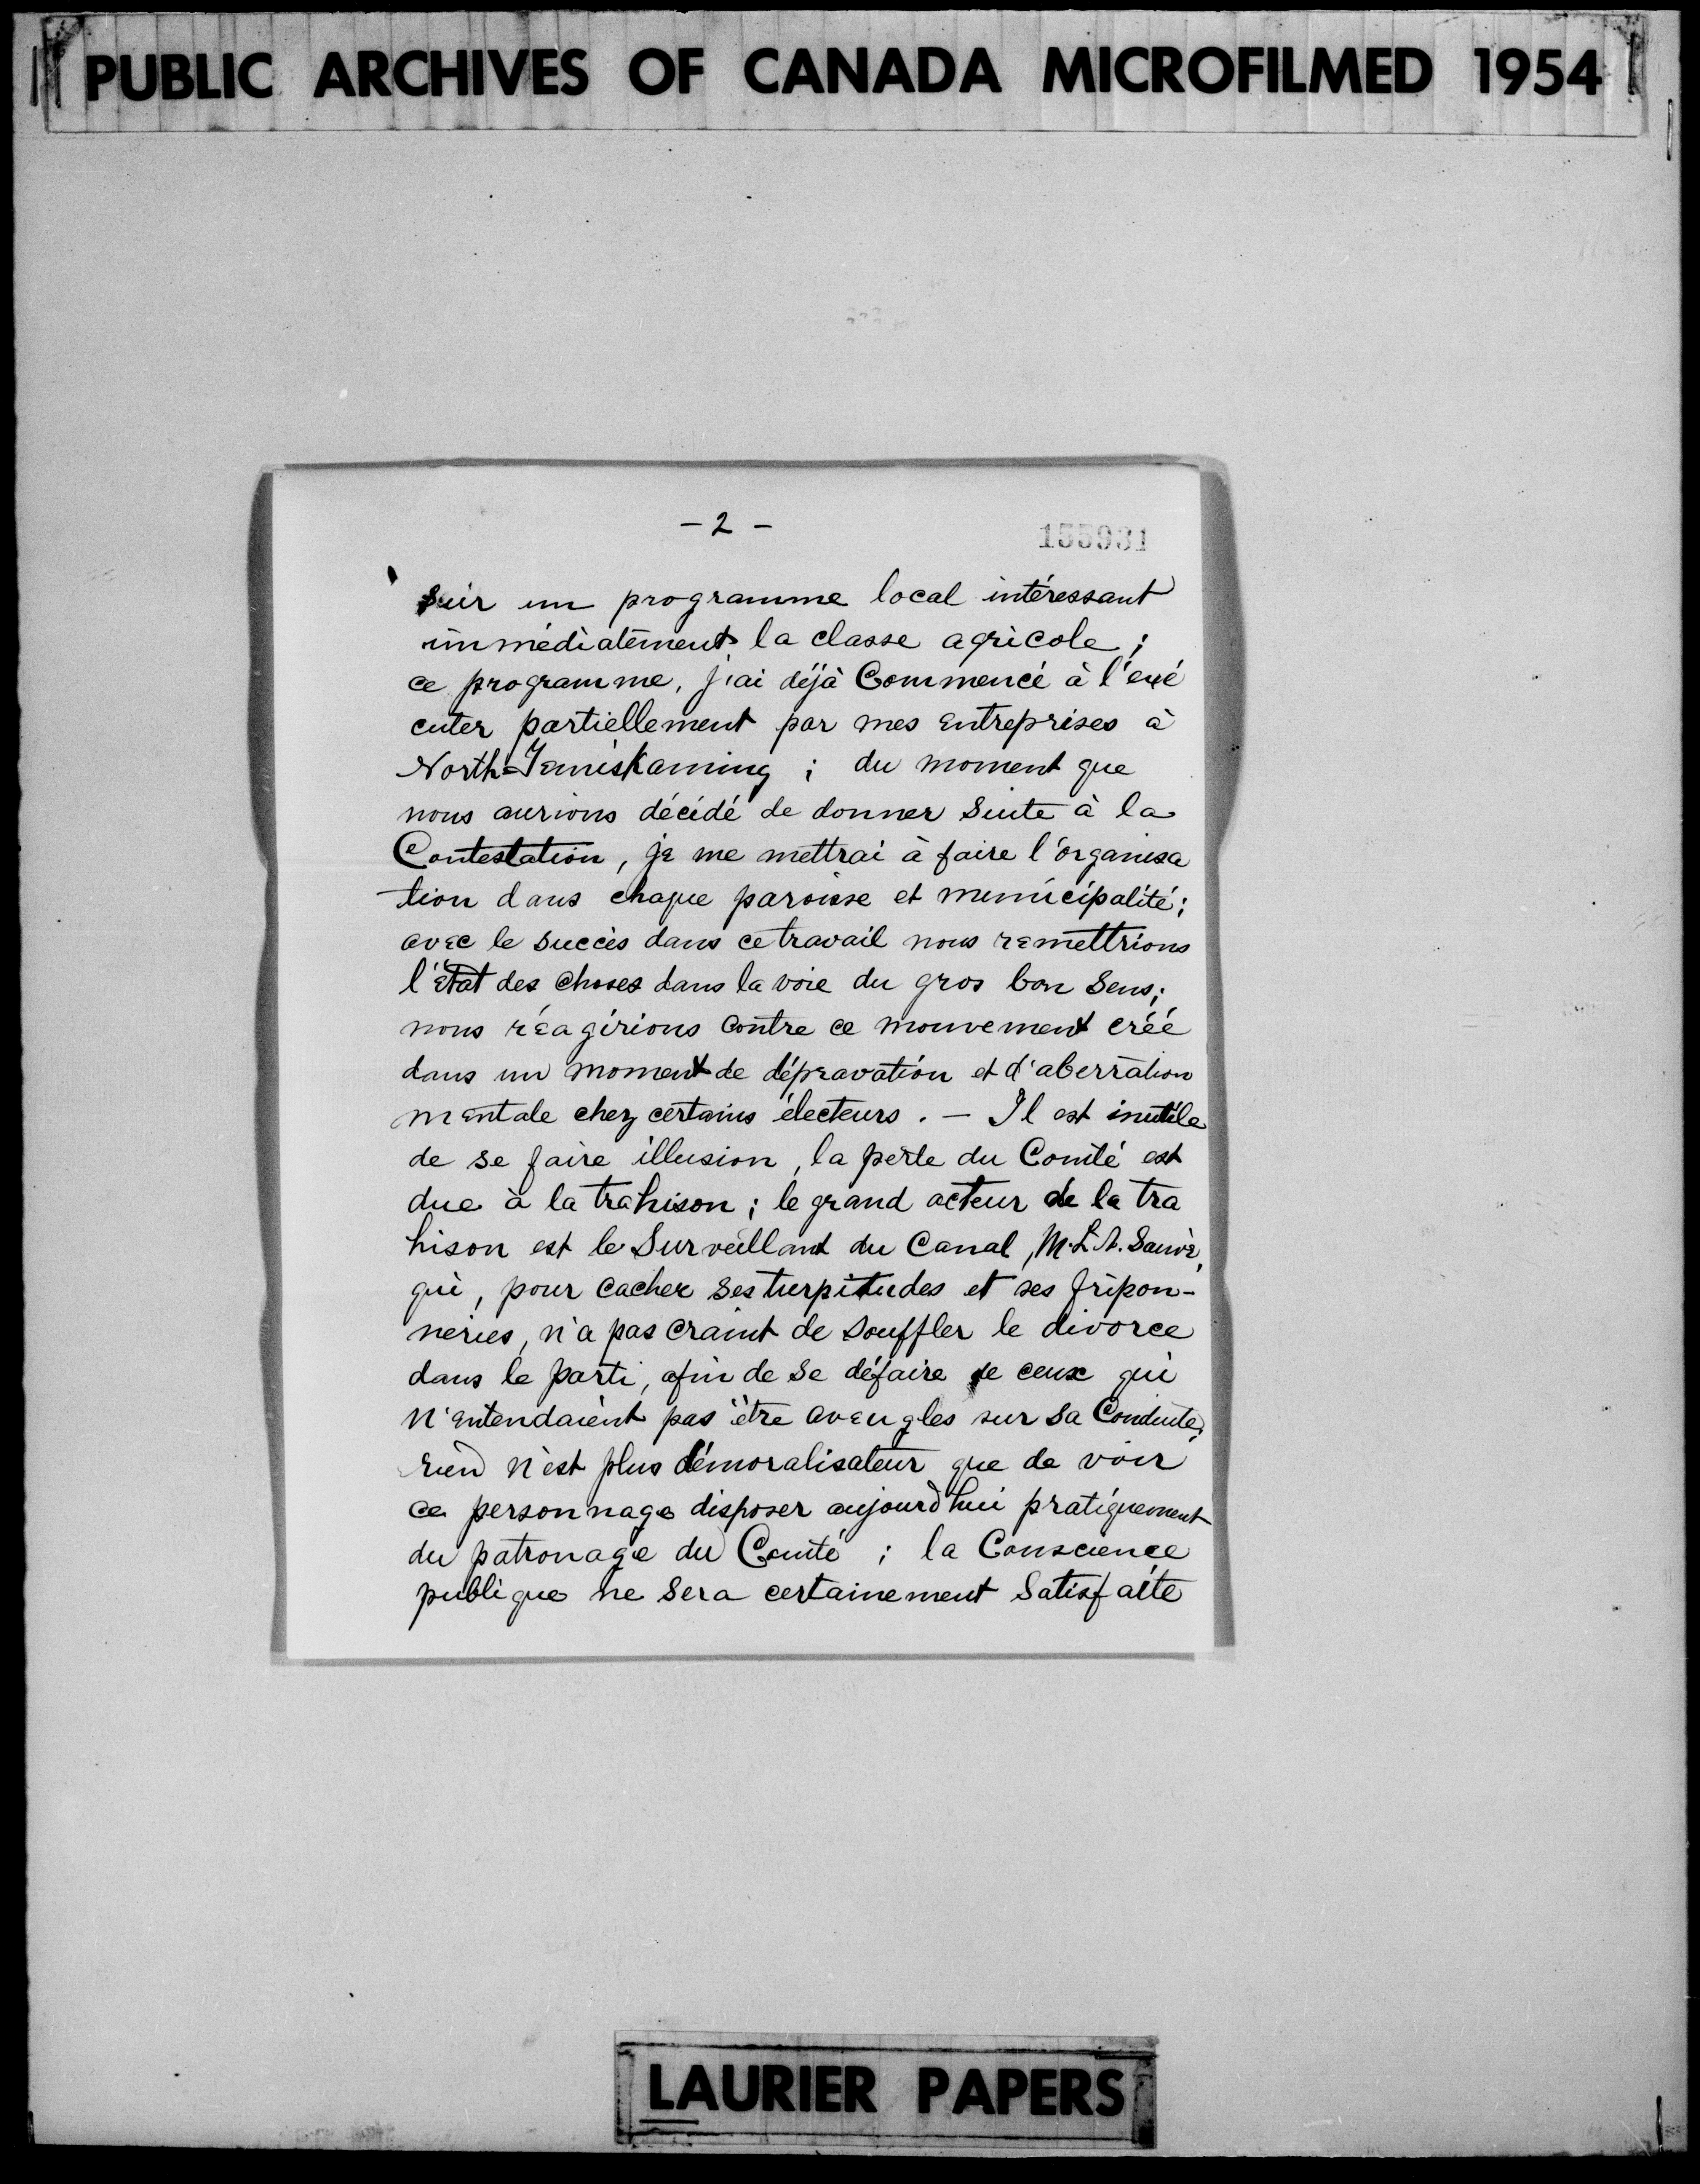 PUBLIC ARCHIVES OF CANADA MICROFILMED 1954
- 2 -
155931
sur un programme local intéressant
immédiatement la classe agricole ;
ce programme, j'ai déjà Commencé à l'exé
cuter partiellement par mes entreprises à
North-Temiskaming ; du moment que
nous aurions décidé de donner suite à la
Contestation, je me mettrai à faire l'organisa
tion dans chaque paroisse et municipalité ;
avec le succès dans ce travail nous remettrions
l'état des choses dans la voie du gros bon sens ;
nous réagirions contre ce mouvement créé
dans un moment de dépravation et d'aberration
mentale chez certains électeurs . - Il est inutile
de se faire illusion, la perte du Comté est
due à la trahison ; le grand acteur de la tra
hison est le Surveillant du Canal, M. L. A. Sauvé,
qui, pour cacher ses turpitudes et ses fripon-
neries, n'a pas craint de souffler le divorce
dans le parti, afin de se défaire de ceux qui
n'entendaient pas être aveugles sur sa Conduite;
rien n'est plus démoralisateur que de voir
ce personnage disposer aujourd'hui pratiquement
du patronage du Comté ; la Conscience
publique ne sera certainement satisfaite
LAURIER PAPERS